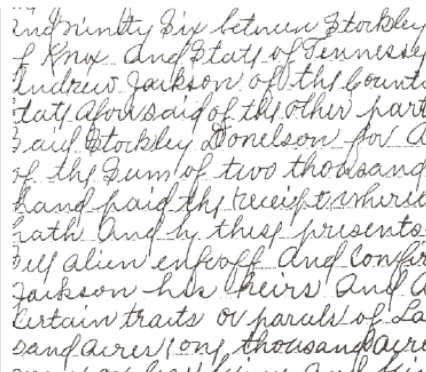 and ninety six between Stockley
f Knox and State of Tennessee
Andrew Jackson of the Count
tate aforesaid of the other part
said Stockley Donelson for a
of the Sum of two thousand
hand paid the receipt where
hath and by these presents
sell alien enfeoff and Confir
Jackson his heirs and a
Certain traits or parcels of La
sand acres one thousand acre